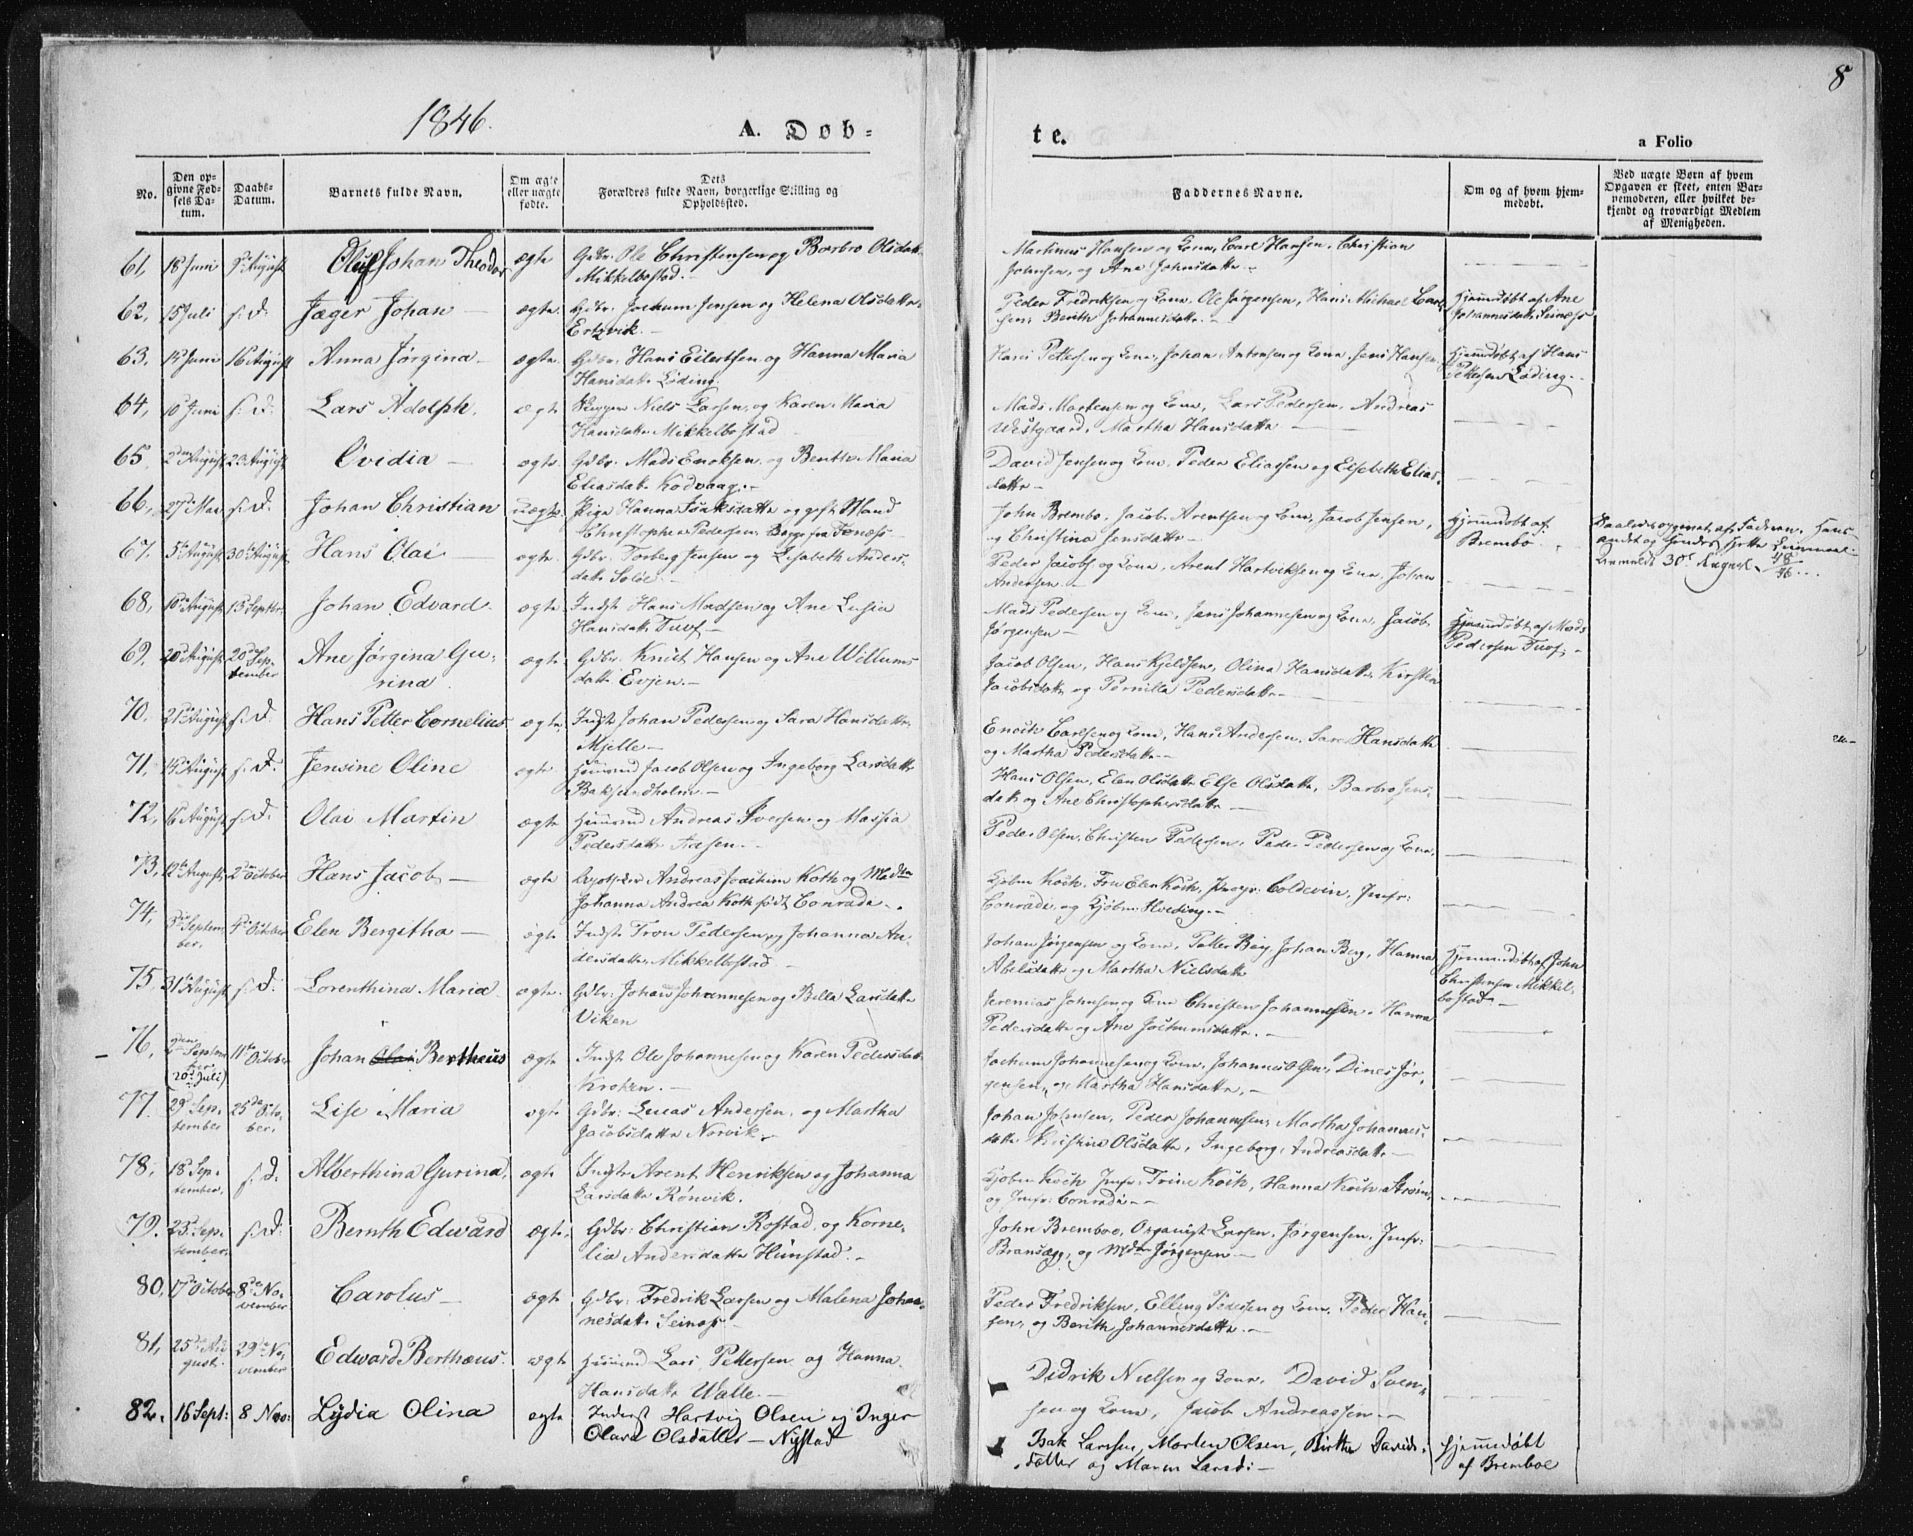 8
1846.
A. Døb=
te.
a Folio
No.
Den op-
givne Fød-
sels Da-
tum.
Daabs-
Datum.
Barnets fulde Navn.
Om ægte
eller uægte
fødte.
Dets
Forældres fulde Navn, borgerlige Stilling og
Opholdssted.
Faddernes Navne.
Om og af hvem hjem-
medøbt.
Ved uægte Børn af hvem
Opgaven er skeet, enten Bar-
nemoderen, eller hvilket be-
kjendt og troværdigt Medlem
af Menigheden.
61, 18 Juni August Oluf Johan Theodor ægte Gdbr. Ole Christensen og Barbro Olsdatt.
Mikkelbostad.
Martinus Hansen og Kone, Carl Hansen, Christian
Johnsen, og Ane Johnsdattr
62, 15 Juli s. D. Jæger Johan ægte Gdbr. Jochum Jensen og Helena Olsdattr
Ertzvik.
Peder Fredriksen og Kone, Ole Jørgensen, Hans Michael Carl-
sen, Berith Johannesdattr.
Hjemmdøbt af Ane
Johannesdattr Seinæss
63, Juni 16 August Anna Jørgina ægte Gdbr. Hans Eilertsen og Hanna Maria
Hansdattr Løding.
Hans Pettersen og Kone, Johan Antonsen og Kone, Jens Hansen
Hjemmdøbt af Hans
Pettersen Løding.
64, 10 Juni s. D. Lars Adolph. ægte Niels Larsen, og Karen Maria
Hansdattr Mikkelbostad
Mads Mortensen og Kone, Lars Pedersen, Andreas
Westgaard, Martha Hansdattr
65, 2den August 23 August Ovidia ægte Gdbr. Mads Enoksen og Benthe Maria
Eliasdattr Kodvaag.
David Jensen og Kone, Peder Eliassen og Elsebeth Elias-
dattr
66, 27 Mai s. D. Johan Christian uægte Pige Hanna Isaksdattr og gift Mand
Christopher Pedersen
John Brembo, Jacob Arentsen og Kone, Jacob Jensen,
og Christina Jensdattr
Hjemmdøbt af
Brembo
67, 5te August 30te August Hans Olai ægte Gdbr. Torberg Jensen og Elisabeth Anders-
dattr Soløe.
Peder Jacobs og Kone, Arent Hartviksen og Kone, Johan
Andersen.
68, 10de August 13 Septbr. Johan Edvard ægte Indst. Hans Madsen og Ane Lusia
Hansdattr Tuv
Mads Pedersen og Kone, Jens Johannesen og Kone, Jacob
Jørgensen
Hjemmdøbt af Mads
Pedersen Tuv
69, August 20de Sep-
tember Ane Jørgina Gu-
rina ægte Gdbr. Knut Hansen og Ane Willums
datt. Evjen.
Jacob Olsen, Hans Kjeldsen, Olina Hansdattr, Kirsten
Jacobsdattr og Pernilla Pedersdattr
70, 21de August s. D. Hans Petter Cornelius ægte Indst. Johan Pedersen og Sara Hansdattr
Mjelle
Enoch Carlsen og Kone, Hans Andersen, Sara Hansdattr
og Martha Pedersdattr
71, August s. D. Jensine Oline ægte Huusmd Jacob Olsen og Ingeborg Larsdattr
Baksundholm
Hans Olsen, Elen Olsdattr Else Olsdattr, Barbro Jens-
datt og Ane Christophersdattr
72, 16 August s. D. Olai Martin ægte Huusmd Andreas Iversen og Massia
Pedersdattr Aasen.
Peder Olsen, Christen Pedersen, Peder Pedersen og Kone,
73, 12te August 2den October Hans Jacob ægte Andreas Joachim Koch og Mad.
Johanna Andrea Koch født Conradi.
Kjøbm Koch, Fru Elen Koch, Coldevin, Jmfr:
Conradi og Kjøbm: Hveding.
74, Septem-
ber. 4de October Elen Bergitha ægte Indst. Tron Pedersen og Johanna An-
dersdattr, Mikkelbostad
Johan Jørgensen og Kone, Petter Berg, Johan Berg, Hanna
Abelsdattr og Martha Nielsdattr
Hjemmdøbt af John
Christensen Mikkel-
bostad
75, 31te August s. D. Lorenthina Maria ægte Gdbr. Johan Johannesen og Billa Larsdattr
Viken
Jeremias Johnsen og Kone Christen Johannesen. Hanna
Pedersdattr og Ane Jochumsdattr.
76, Septem
ber
(20 Juli) 11te October Johan Olai Bertheus ægte Indst. Ole Johannesen og Karen Pedersdattr
Kroken.
Jochum Johannesen og Kone, Johannes Olsen, Dines Jør-
gensen, og Martha Hansdattr.
77. 29 Sep-
tember 25de Octo-
ber. Lise Maria ægte Gdbr. Lucas Andersen, og Martha
Jacobsdattr Norvik.
Johan Johnsen, Peder Johannesen, Martha Johannes-
dattr Olsdattr, Ingeborg Andreasdattr
78, 18 Sep-
tember. s. D. Alberthina Gurina, ægte Indst. Arent Henriksen og Johanna
Larsdattr Rønvik.
Kjøbm Koch Jmfr: Trine Koch, Hanna Koch Strøm,
og Jmfr: Conradi
79. 23 Sep-
tember. s. D. Bernth Edward ægte Gdbr. Christian Rostad, og Korne-
lia Andersdattr Hunstad.
John Bremboe, Organist Larsen, Jørgensen, Jmfr:
og Mdm Jørgensen
80, 17de October 8de No-
vember Carolus ægte Gdbr. Fredrik Larsen og Malena Johan-
nesdattr Seinæs
Peder Fredriksen, Elling Pedersen og Kone, Peder Han-
sen, og Berith Johannesdattr.
81, 25de Au-
gust. 29de No-
vember Edward Berthæus. ægte Huusmd Lars Pettersen og Hanna
Hansdattr Walle.
Didrik Nielsen og Kone, David Sven-
sen og Kone, Jacob Andreassen
82. 16 Sept: 8 Nov: Lydia Olina ægte Inderst Hartvig Olsen og Inger
Olava Olsdatter Nystad
Isak Larssen, Morten Olsen, Birthe Davids-
datter og Maren Larsd:
hjemmedøbt
af Bremboe